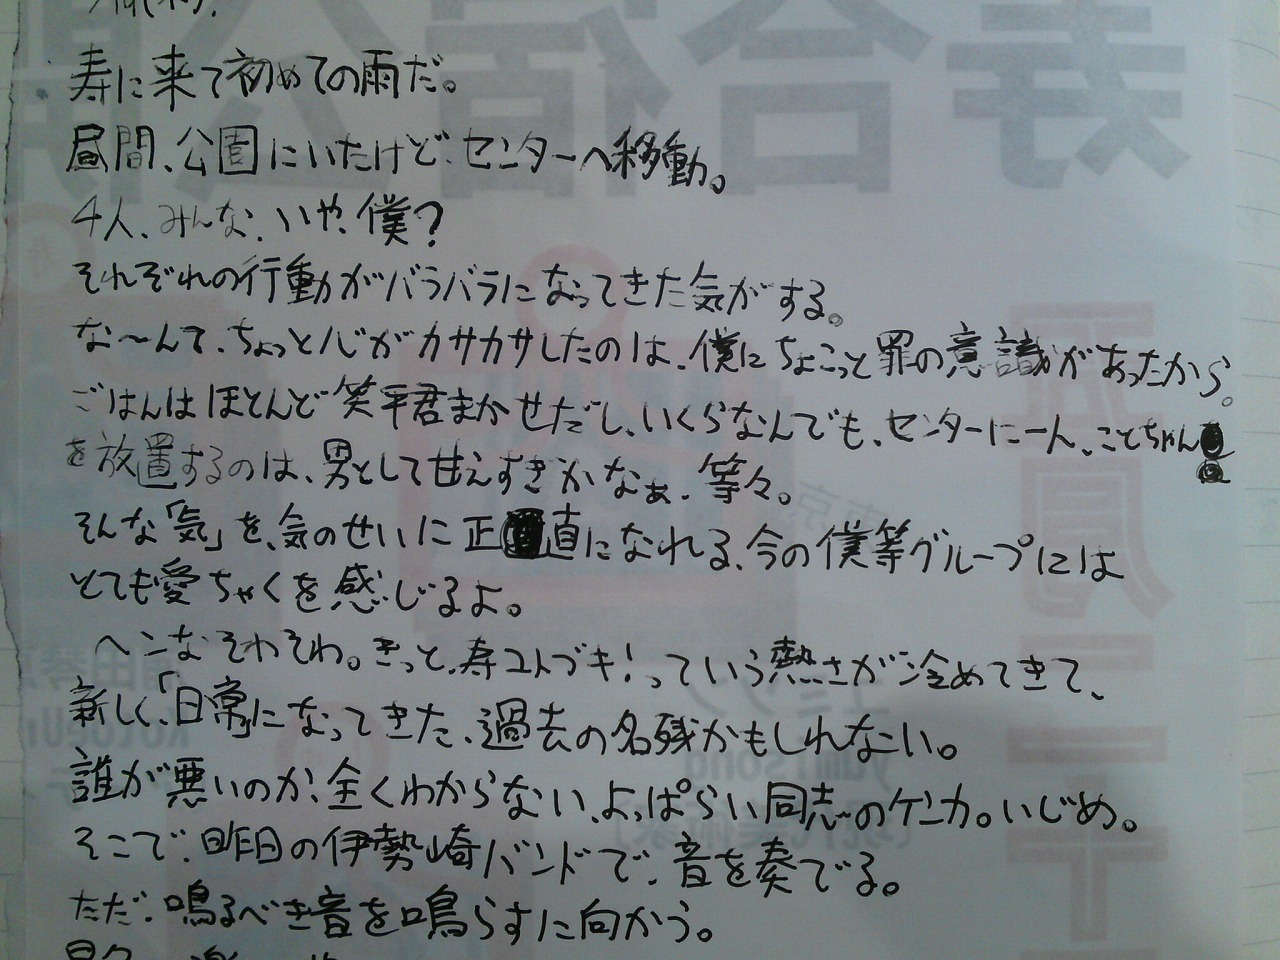 寿に来て初めての雨だ。
昼間、公園にいたけど、センターへ移動。
4人、みんな、いや、僕？
それぞれの行動がバラバラになってきた気がする。
な〜んて、ちょっと心がカサカサしたのは、僕にちょこっと罪の意識があったから。
ごはんはほとんど笑平君まかせだし、いくらなんでも、センターに一人、ことちゃん
を放置するのは、男として甘えすぎかなぁ、等々。
そんな「気」を、気のせいに正直になれる、今の僕等グループには
とても愛ちゃくを感じるよ。
ヘンなそわそわ。きっと、寿コトブキ！っていう熱さが冷めてきて、
新しく、「日常」になってきた、過去の名残かもしれない。
誰が悪いのか、全くわからない、よっぱらい同志のケンカ。いじめ。
そこで、昨日の伊勢崎バンドで、音を奏でる。
ただ、鳴るべき音を鳴らすに向かう。
寿合宿
yumi song
ユミソン
kotobuki